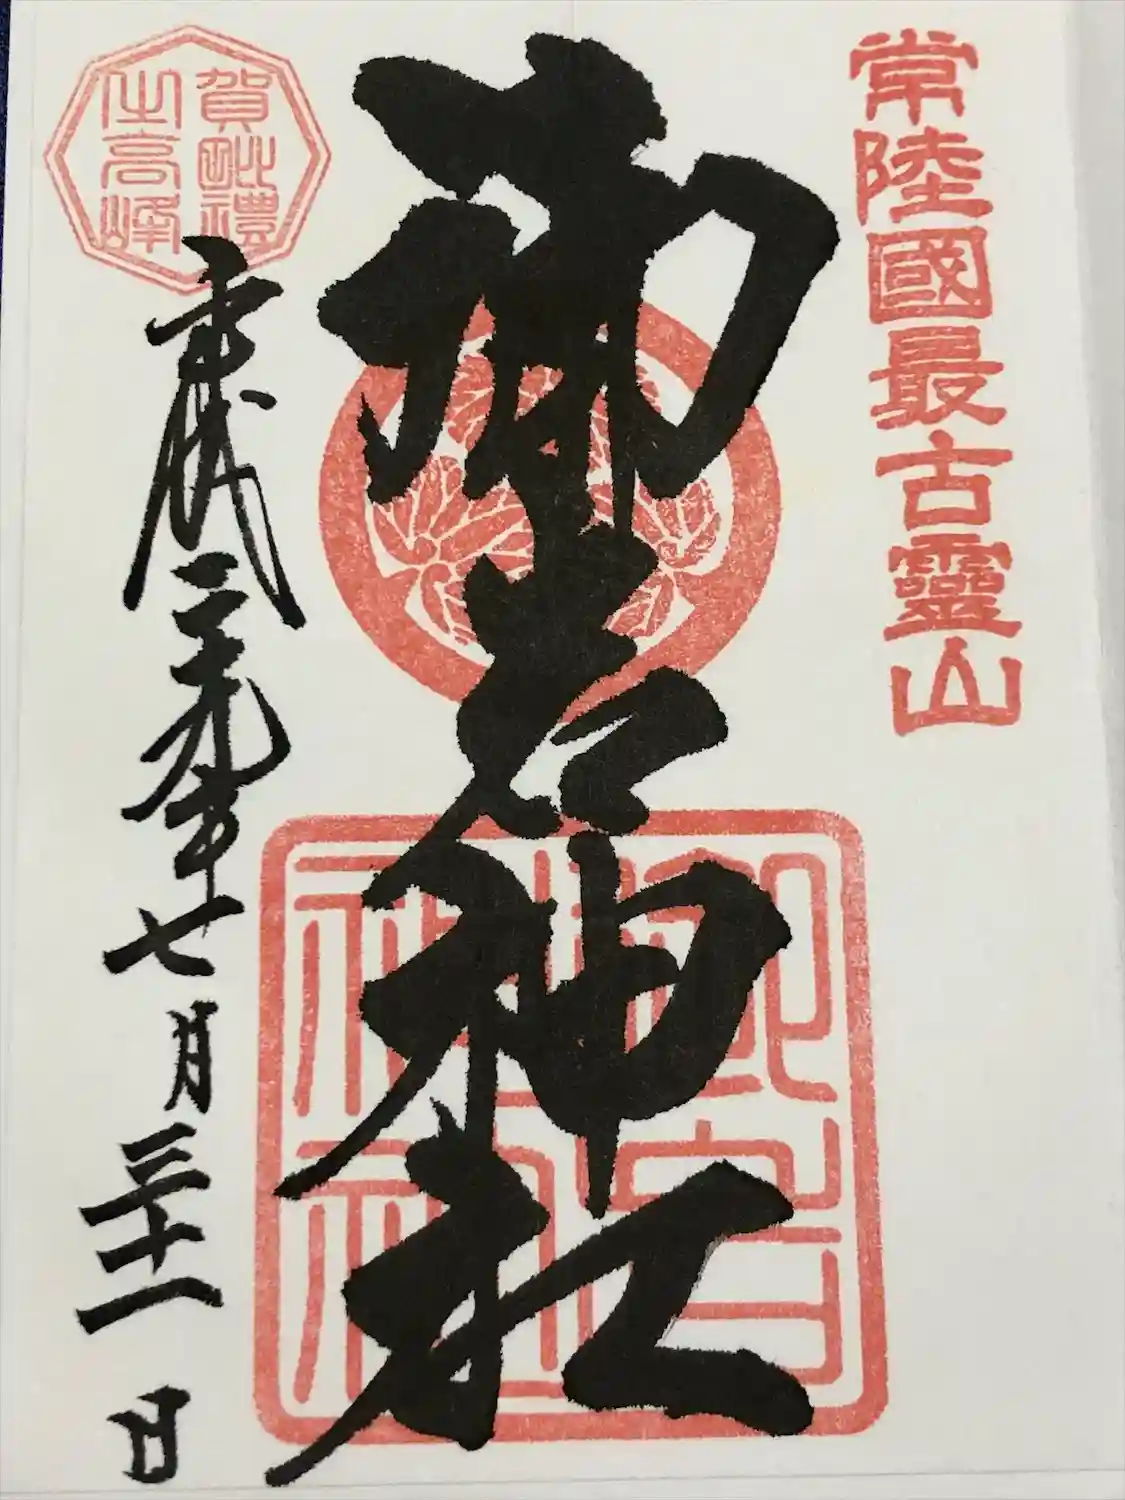 常陸國最古靈山
御岩神社
御岩
神社
賀毗禮
之高峰
平成二十九年七月三十一日